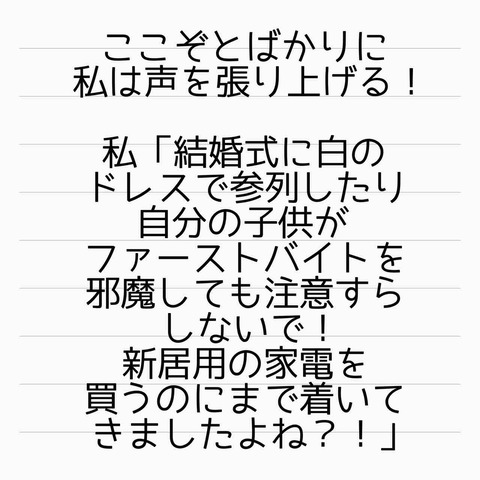 ここぞとばかりに
私は声を張り上げる！
私「結婚式に白の
ドレスで参列したり
自分の子供が
ファーストバイトを
邪魔しても注意すら
しないで！
新居用の家電を
買うのにまで着いて
きましたよね？！」